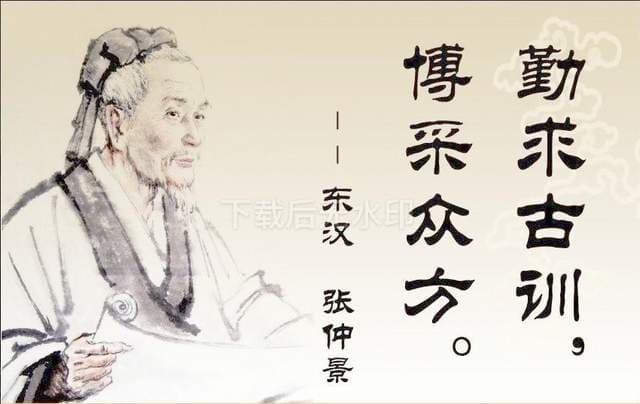 勤求古训，
博采众方。
——东汉 张仲景
下载后无水印